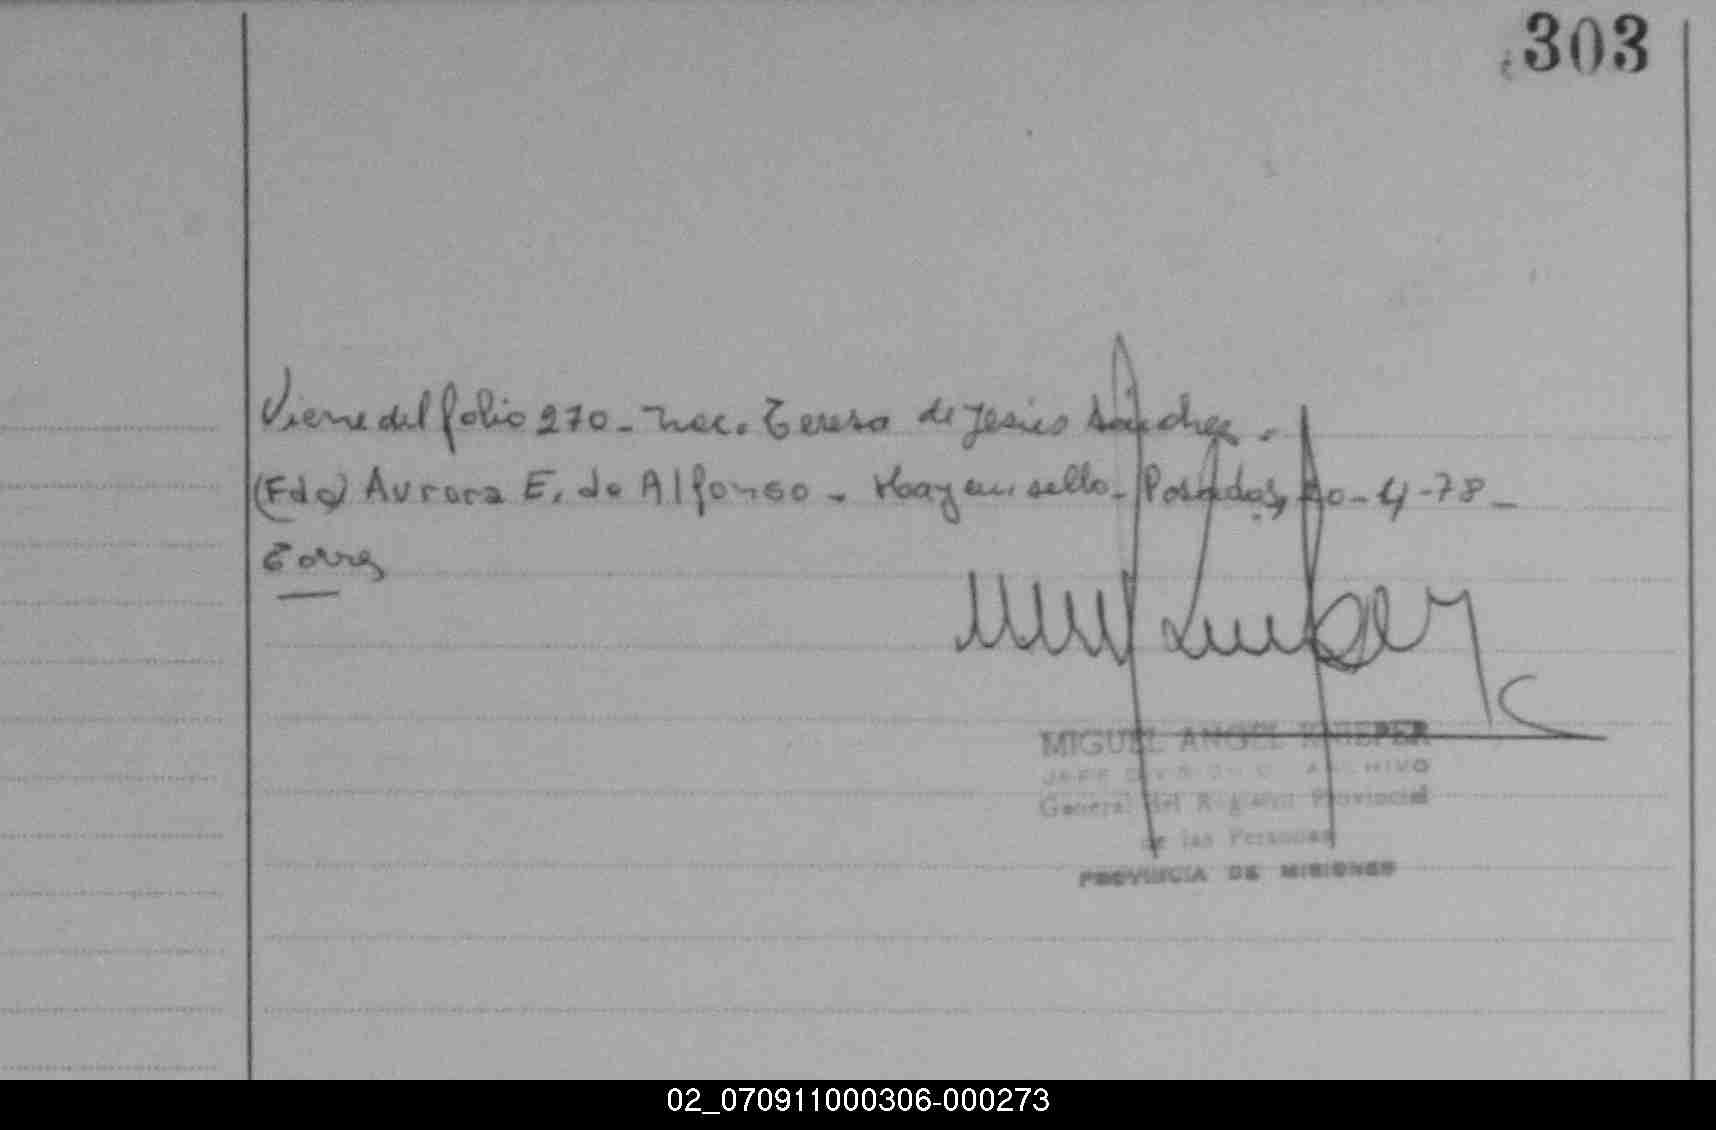 303
Viene del folio 270 - Nac. Teresa de Jesús Sánchez.
(Fdo) Aurora E. de Alfonso - Hay un sello - Posadas, 20-4-78 -
Torres
MIGUEL ANGEL KNIEPER
JEFE DIVISION ARCHIVO
General del Registro Provincial
de las Personas
PROVINCIA DE MISIONES
02_070911000306-000273